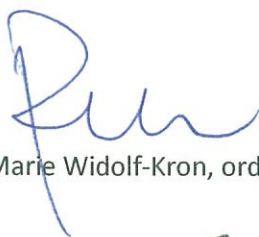 Marie Widolf-Kron, ord